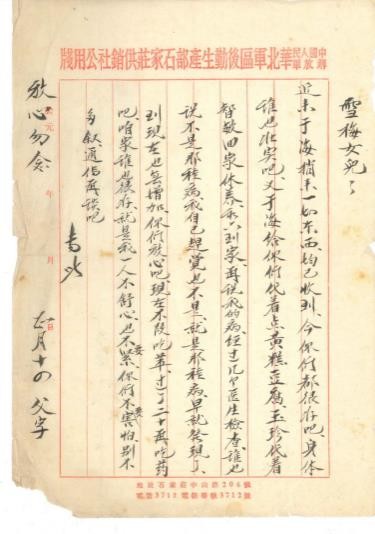 中國人民解放軍華北軍區後勤生產部石家莊供銷社公用牋
雪梅女兒
近來于海梢來一切东西均已收到，今你们都很好吧，身体
誰也壯实吧，又于海给你们代着点黄糕豆腐，玉珍代着
智敏回家休养 到家再説我的病经过几个医生检查，誰也
説不是那種病，我自己想覚也不是，就是那種病，早就發現了，
到現在也無增加，你们放心吧，現在不段吃药，过了二十再吃药
吧，咱家誰也很好，就是我一人不舒心也不要紧，你们不要害怕，别不
多叙，通信再談吧
此
放心勿念
公元 年 月 日
七月十四 父字
地址石家莊中山路206號
電話3712 電報掛號3712號